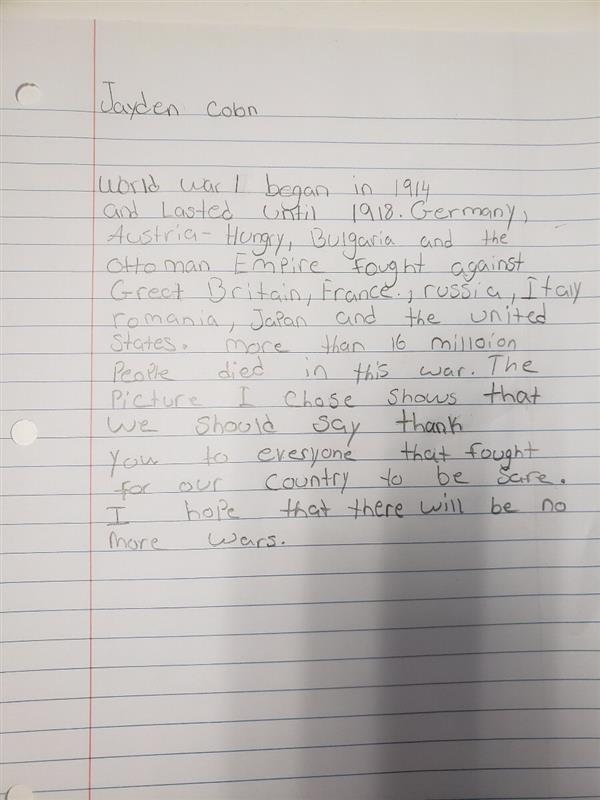 Jayden Cobn
World war 1 began in 1914
and Lasted until 1918. Germany,
Austria-Hungry, Bulgaria and the
Ottoman Empire fought against
Grect Britain, France., russia, Italy
romania, Japan and the united
States. more than 16 milloion
People died in this war. The
Picture I chose shows that
we should say thank
you to everyone that fought
for our country to be sare.
I hope that there will be no
more wars.